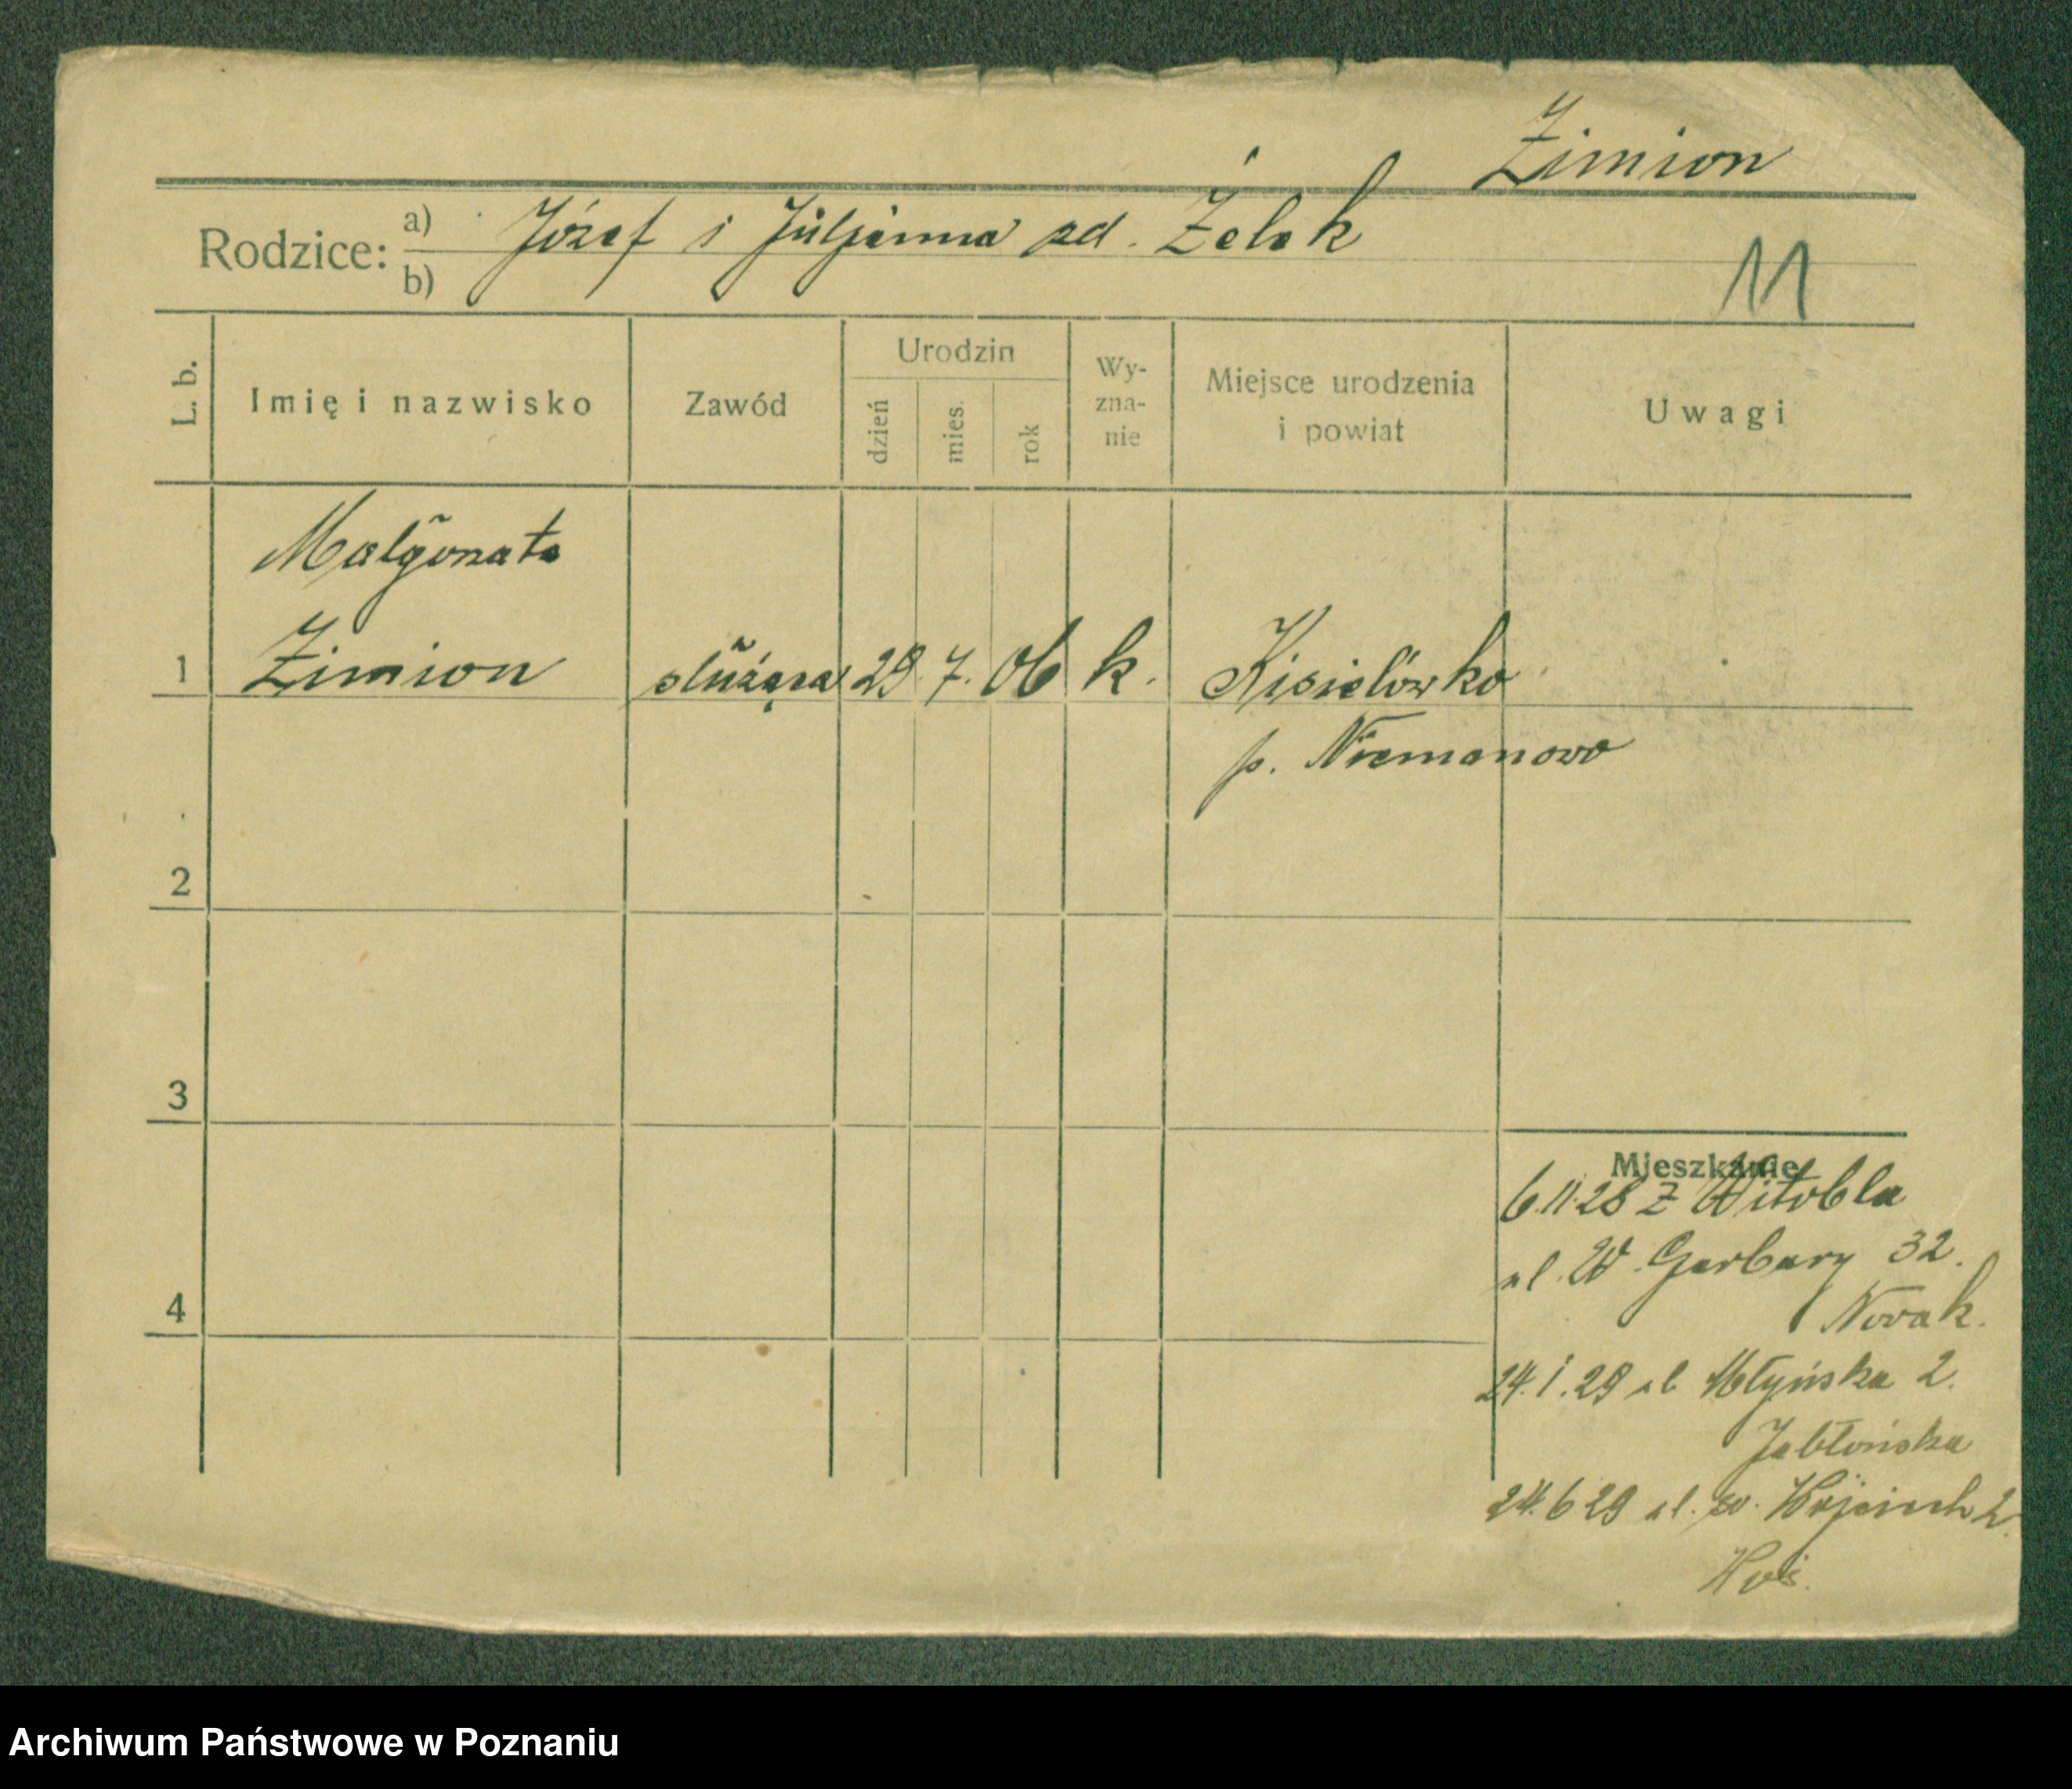 Zimion
Rodzice: a) Józef i Juljanna zd. Żelek
b)
11
L. b.
Imię i nazwisko
Zawód
Urodzin
dzień
mies.
rok
Wy-
zna-
nie
Miejsce urodzenia
i powiat
Uwagi
Malgorzata
1 Zimion służąca 29. 7. 06 k. Kisielówko
p.
2
3
4
Mieszkanie
6.11.28 z Witobla
ul. W. Garbary 32.
Novak.
24.1.29 ul. Młyńska 2.
Jabłońska
24.6 29 ul. św. Wojciech 2.
Archiwum Państwowe w Poznaniu